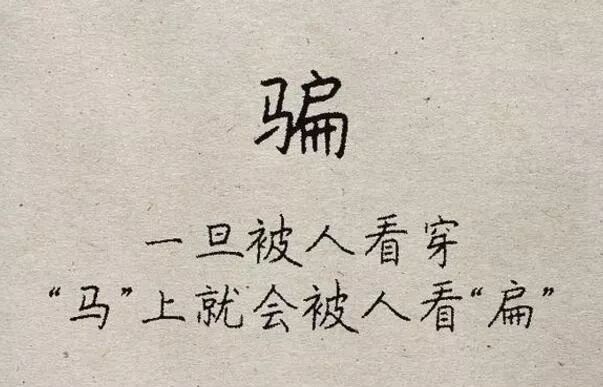 骗
一旦被人看穿
“马”上就会被人看“扁”